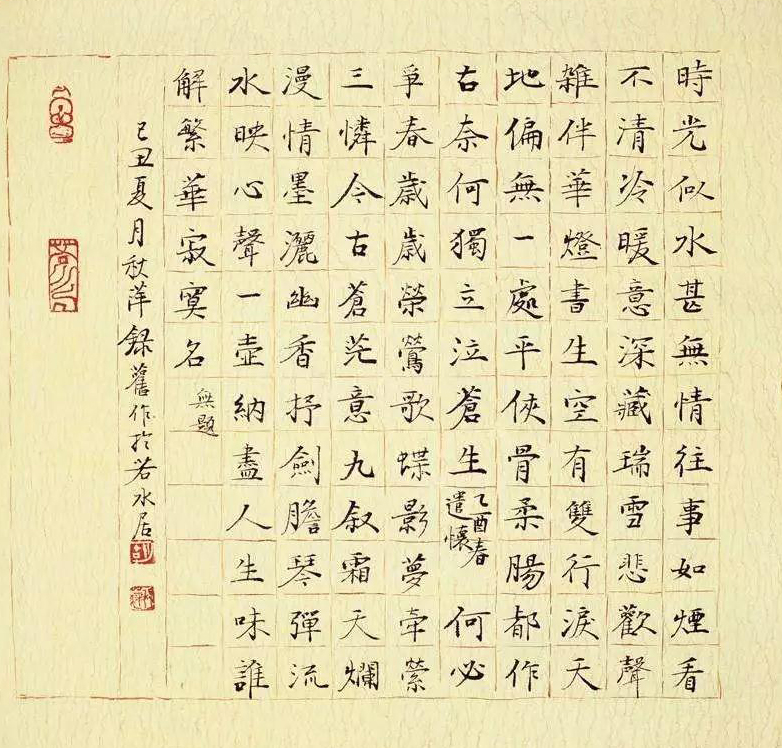 時光似水甚無情往事如煙看
不清冷暖意深藏瑞雪悲歡聲
雜伴華燈書生空有雙行淚天
地偏無一處平俠骨柔腸都作
古奈何獨立泣蒼生乙酉春遣懷何必
爭春歲歲榮鶯歌蝶影夢牽縈
三憐今古蒼茫意九叙霜天爛
漫情墨灑幽香抒劍膽琴彈流
水映心聲一壺納盡人生味誰
解繁華寂寞名無題
己丑夏月秋萍錄舊作扵若水居